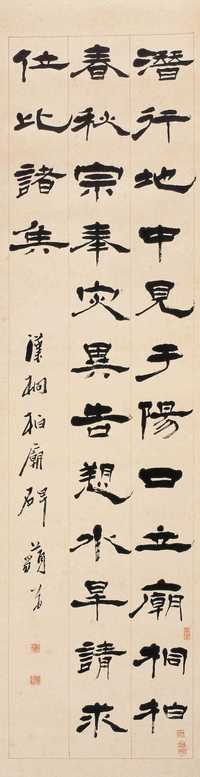 潛行地中見于陽口立廟桐柏
春秋宗奉灾異告愬水旱請求
位比諸矦
漢桐柏廟碑